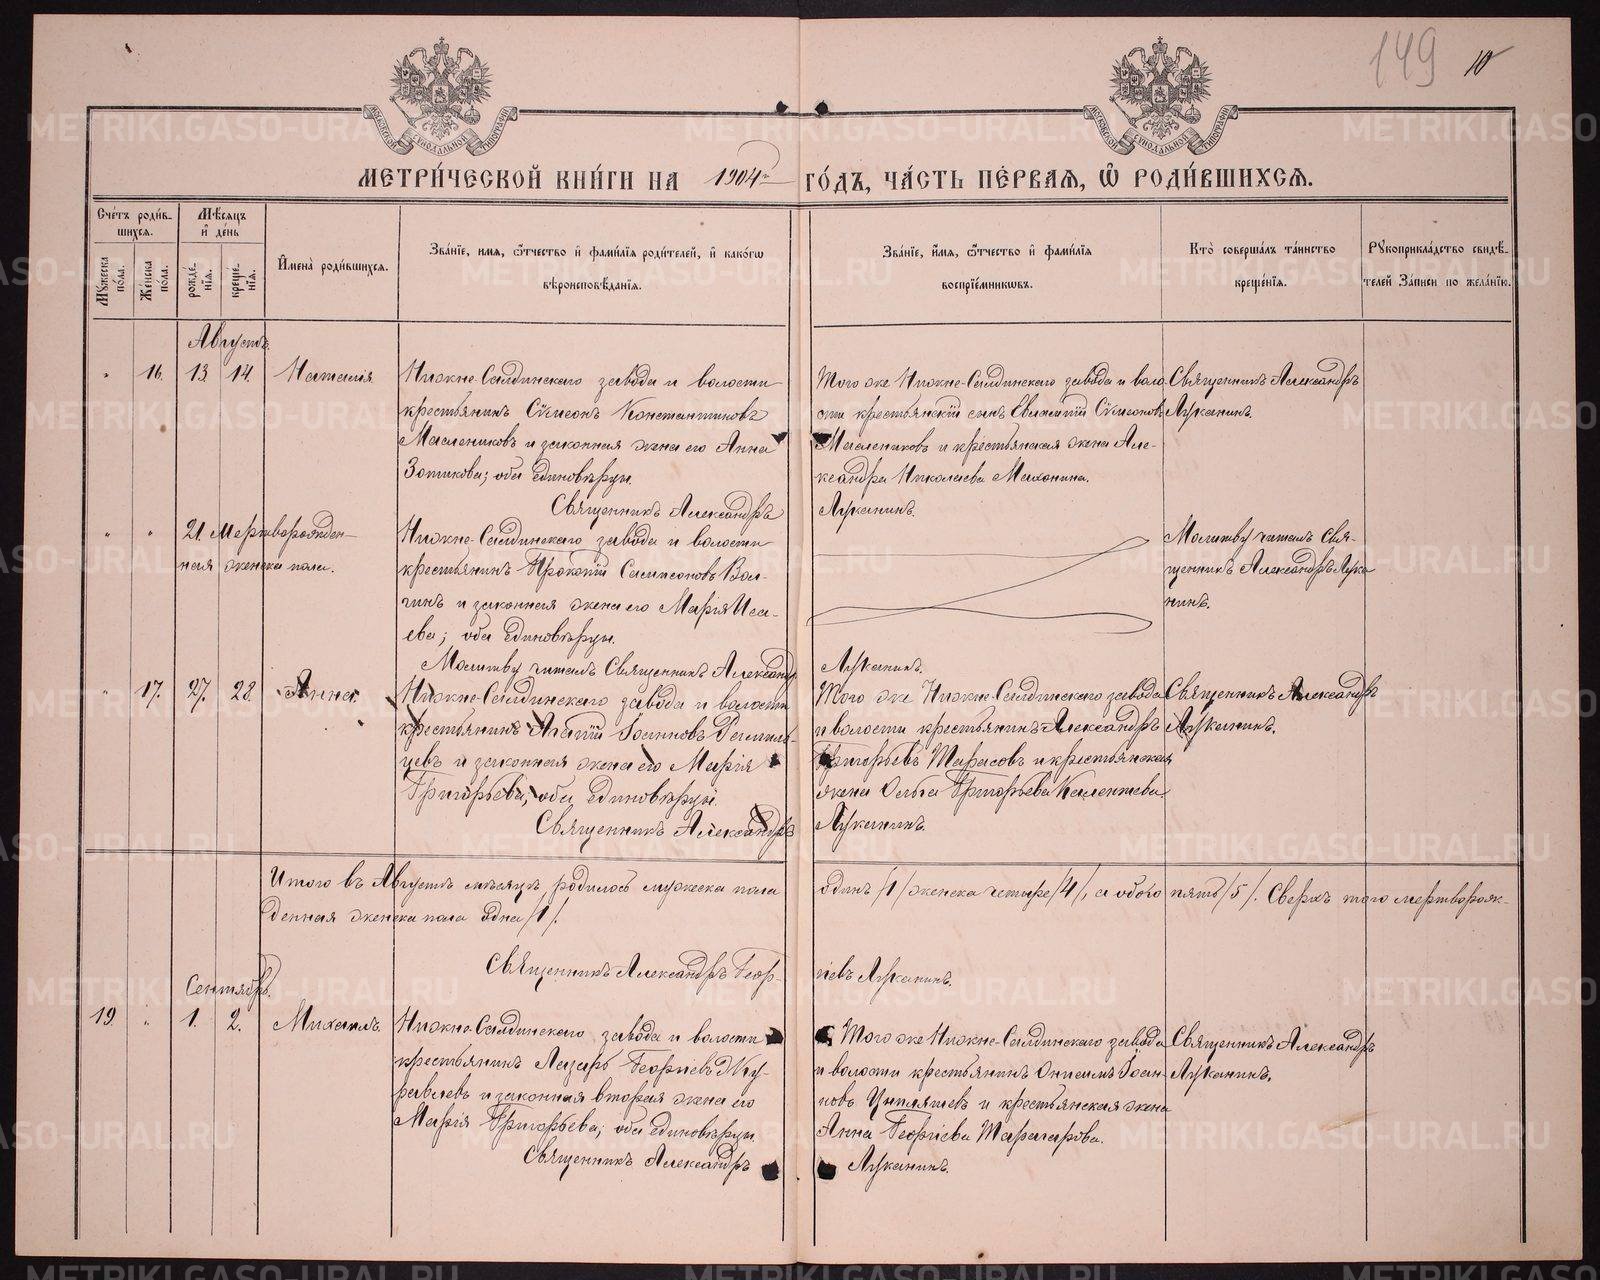 149 10
МОСКОВСКОЙ СѴНОДАЛЬНОЙ ТИПОГРАФІИ
МОСКОВСКОЙ СѴНОДАЛЬНОЙ ТИПОГРАФІИ
МЕТРИ́ЧЕСКОЙ КНИ́ГИ НА 1904й ГО́ДЪ, ЧА́СТЬ ПЕ́РВАЯ, Ѡ РОДИ́ВШИХСЯ.
Сче́тъ роди́в-
шихся.
Мѣ́сяцъ
и де́нь
Мꙋ́жеска
по́ла.
Же́нска
по́ла.
рожде́-
нїя.
креще́-
нїя.
И҆мена̀ роди́вшихся.
Зва́нїе, и҆мя, ѻ҆́тчество и҆ фами́лїя роди́телей, и҆ како́гѡ
вѣроисповѣ́данїя.
Зва́нїе, и҆́мя, ѻ҆́тчество и҆ фами́лїя
воспрїе́мникѡвъ.
Кто̀ соверша́лъ та́инство
креще́нїя.
Рꙋкоприкла́дство свидѣ́-
телей за́писи по жела́нїю.
Августъ.
" 16. 13. 14. Наталія.
Нижне-Салдинскаго завода и волости
крестьянинъ Сѵмеонъ Константиновъ
Маслениковъ и законная жена его Анна
Зотикова; оба единовѣрцы.
Священникъ Александръ
Того же Нижне-Салдинскаго завода и воло-
сти крестьянскій сынъ Евлампій Сѵмеоновъ
Маслениковъ и крестьянская жена Але-
ксандра Николаева Махонина.
Луканинъ.
Священникъ Александръ
Луканинъ.
" " 21. Мертворожден-
ная женска пола.
Нижне-Салдинскаго завода и волости
крестьянинъ Прокопій Сампсоновъ Вол-
гинъ и законная жена его Марія Иса-
ева; оба единовѣрцы.
Молитву читалъ Священникъ Александръ
Луканинъ.
Молитву читалъ Свя-
щенникъ Александръ Лука-
нинъ.
" 17. 27. 28. Анна.
Нижне-Салдинскаго завода и волости
крестьянинъ Агапій Іоанновъ
и законная жена его Марія
Григорьева; оба единовѣрцы.
Священникъ Александръ
Того же Нижне-Салдинскаго завода
и волости крестьянинъ Александръ
Григорьевъ Тарасовъ и крестьянская
жена Ольга Григорьева
Луканинъ.
Священникъ Александръ
Луканинъ.
Итого въ Августѣ мѣсяцѣ родилось мужеска пола один /1/ женска четыре /4/, а обоего пять /5/. Сверхъ того мертворож-
денная женска пола одна /1/.
Священникъ Александръ Геор-
гіевъ Луканинъ.
Сентябрь.
19. " 1. 2. Михаилъ.
Нижне-Салдинскаго завода и волости
крестьянинъ Лазарь Георгіевъ Жу-
равлевъ и законная вторая жена его
Марія Григорьева; оба единовѣрцы.
Священникъ Александръ
Того же Нижне-Салдинскаго завода
и волости крестьянинъ Онисимъ Іоан-
новъ Цыпляшевъ и крестьянская жена
Анна Георгіева
Луканинъ.
Священникъ Александръ
Луканинъ.
METRIKI.GASO-URAL.RU